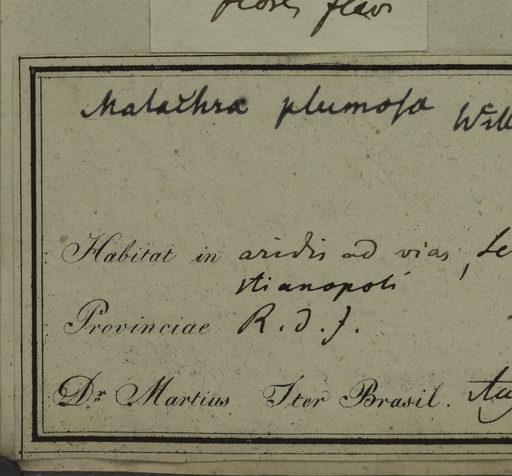 flores flavi
Malachra plumosa Will
Habitat in aridis ad vias, Se
stianopoli
Provinciae R. d. J.
Dr. Martius Iter Brasil. Au